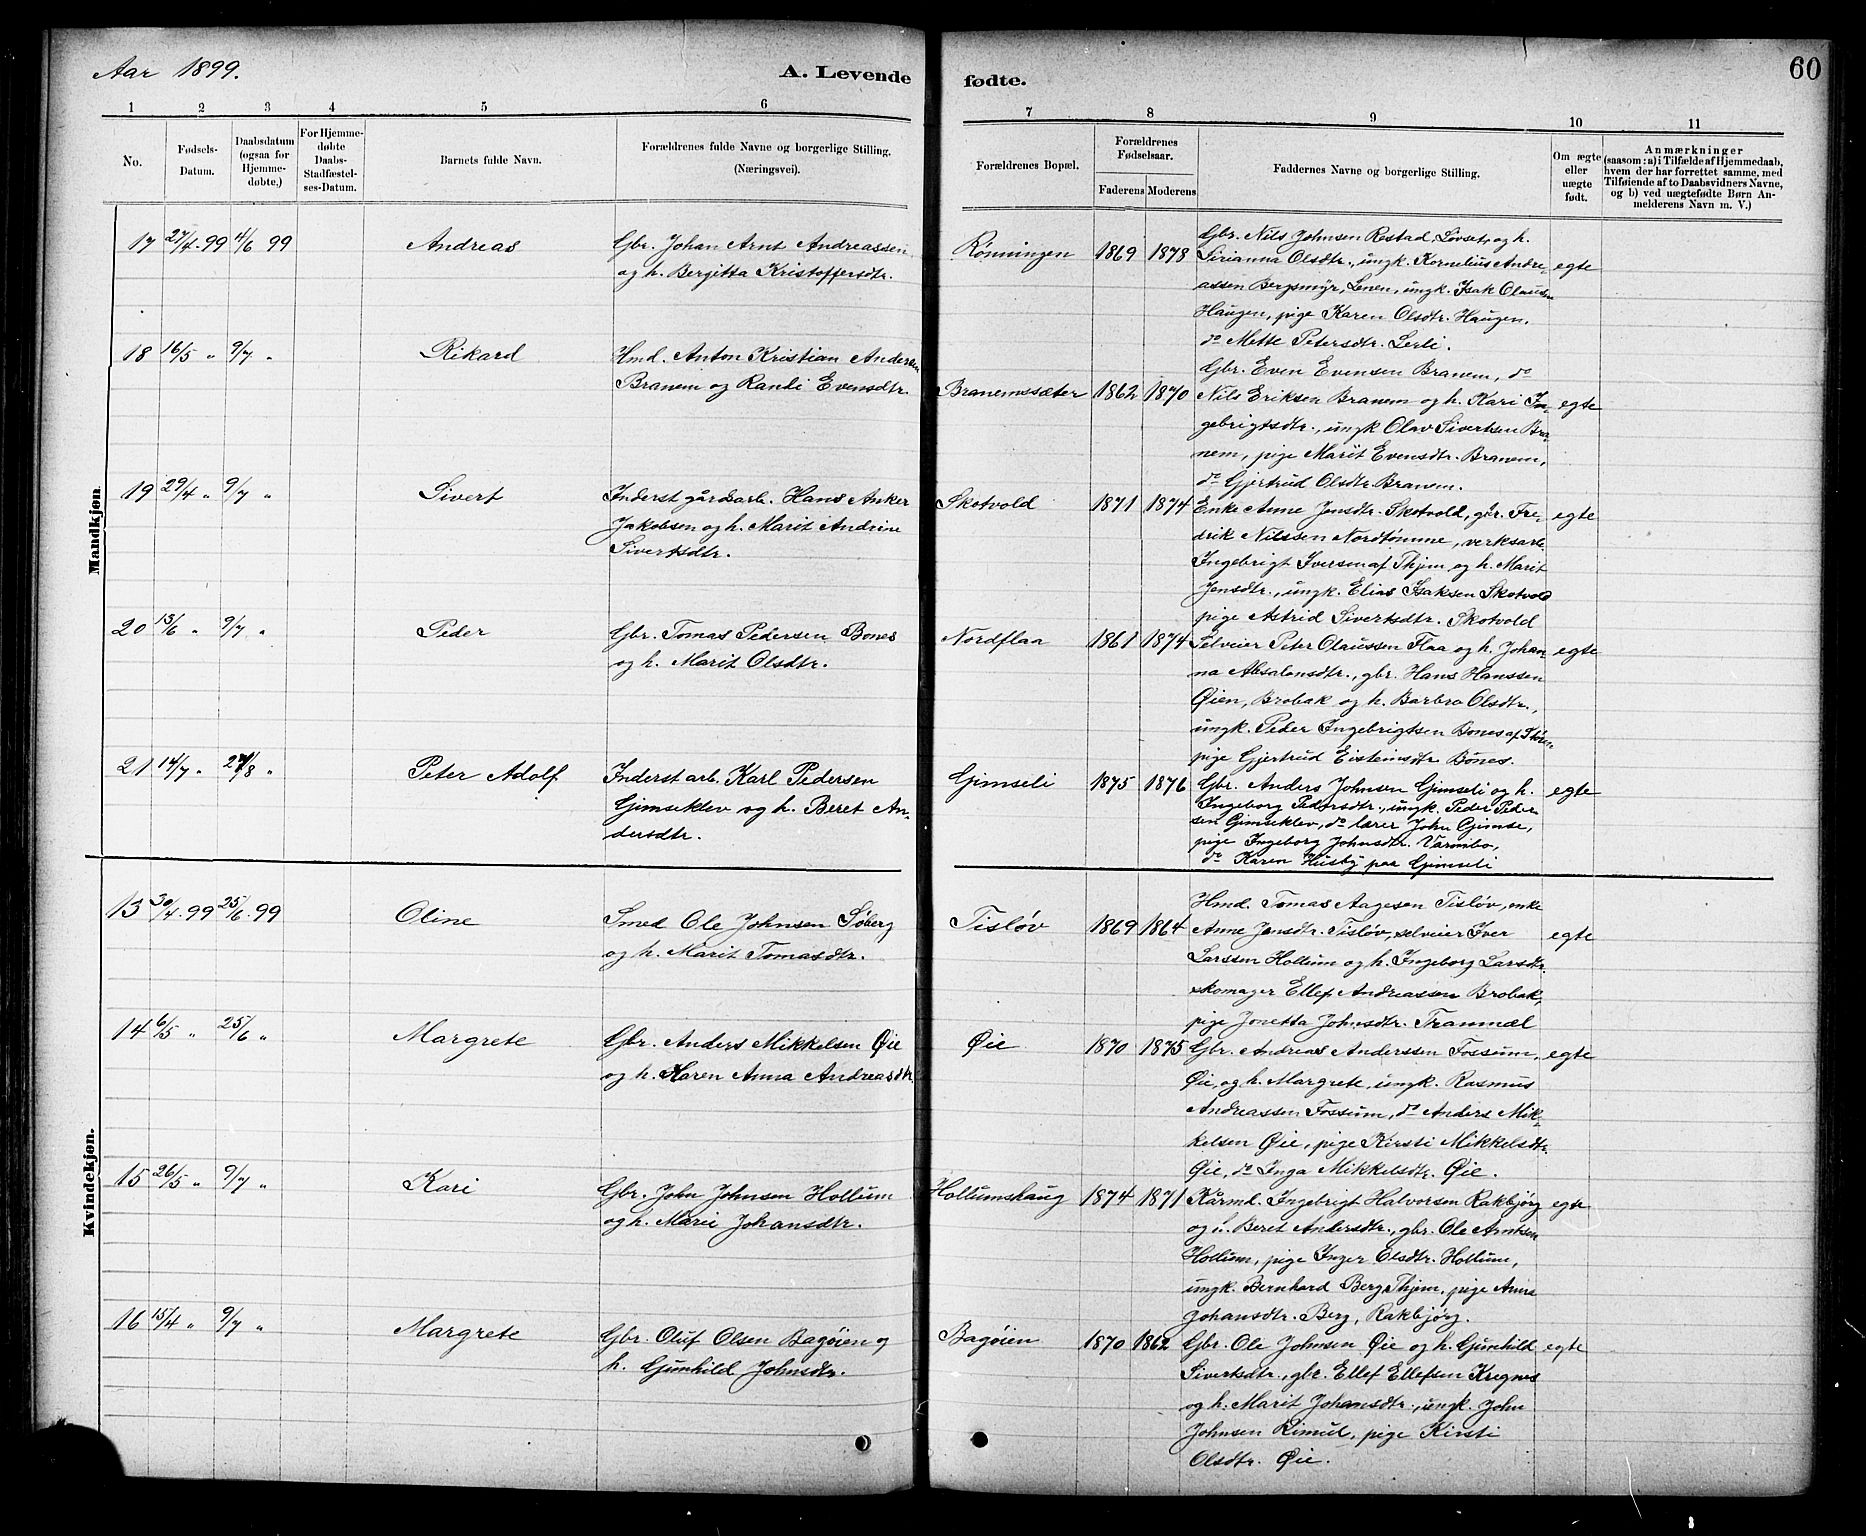 Aar 1899.
A. Levende fødte.
60
1 2 3 4 5 6 7 8 9 10 11
No.
Fødsels-
Datum.
Daabsdatum
(ogsaa for
Hjemme-
døbte.)
For Hjemme-
døbte
Daabs-
Stadfæstel-
ses-Datum.
Barnets fulde Navn.
Forældrenes fulde Navne og borgerlige Stilling.
(Næringsvei).
Forældrenes Bopæl.
Forældrenes
Fødselsaar.
Faderens Moderens
Faddernes Navne og borgerlige Stilling.
Om ægte
eller
uægte
født.
Anmærkninger
(saasom: a) i Tilfælde af Hjemmedaab,
hvem der har forrettet samme, med
Tilføiende af to Daabsvidners Navne,
og b) ved uægtefødte Børn An-
melderens Navn m. V.)
Mandkjøn.
17 27/4 99 4/6 99 Andreas
Gbr. Johan Arnt Andreassen
og h. Bergitta Kristoffersdtr.
Rönningen 1869 1878
Gbr. Nils Johnsen Rostad, Løvset, og h.
Sirianna Olsdtr., ungk. Kornelius Andre-
assen Bergsmyr, Lenen, ungk. Isak Olausen
Haugen, pige Karen Olsdtr. Haugen,
do Mette Petersdtr. Lerli.
egte
18 16/5 " 9/7 " Rikard
Hmd. Anton Kristian Andersen
Branem og Randi Evensdtr.
Branemssæter 1862 1870
Gbr. Even Evensen Branem, do
Nils Eriksen Branem og h. Kari In-
gebrigtsdtr., ungk Olav Sivertsen Bra-
nem, pige Marit Evensdtr. Branem,
do Gjertrud Olsdtr. Branem.
egte
19 29/4 " 9/7 " Sivert
Inderst gårdsarb. Hans Anker
Jakobsen og h. Marit Andrine
Sivertsdtr.
Skotvold 1871 1874
Enke Anne Jonsdtr. Skotvold, gbr. Fre-
drik Nilssen Nordtömme, verksarb.
Ingebrigt Iversen af Thjem og h. Marit
Jonsdtr., ungk. Elias Isaksen Skotvold
pige Astrid Sivertsdtr. Skotvold
egte
20 13/6 " 9/7 " Peder
Gbr. Tomas Pedersen Bones
og h. Marit Olsdtr.
Nordflaa 1861 1874
Selveier Peter Olaussen Flaa og h. Johan-
na Absalonsdtr., gbr. Hans Hanssen
Øien, Brobak og h. Barbro Olsdtr.,
ungk. Peder Ingebrigtsen Bones af Støren
pige Gjertrud Eistensdtr Bones.
egte
21 14/7 " 27/8 " Peter Adolf
Inderst arb. Karl Pedersen
Gimseklev og h. Beret An-
dersdtr.
Gimseli 1875 1876
Gbr. Anders Johnsen Gimseli og h.
Ingeborg Pedersdtr., ungk. Peder Peder
sen Gimseklev, do lærer John Gimse,
pige Ingeborg Johnsdtr. Varmbo,
do Karen Husby paa Gimseli
egte
Kvindekjøn.
13 30/4 99 25/6 99 Oline
Smed Ole Johnsen Søberg
og h. Marit Tomasdtr.
Tisløv 1869 1864
Hmd. Tomas Aagesen Tisløv, enke
Anne Jonsdtr. Tisløv, selveier Iver
Larssen Hollum og h. Ingeborg Larsdtr.
skomager Ellef Andreassen Brobak,
pige Jonetta Johnsdtr. Tranmæl
egte
14 6/5 " 25/6 " Margrete
Gbr. Anders Mikkelsen Øie
og h. Karen Anna Andreasdtr.
Øie 1870 1875
Gbr. Andreas Anderssen Fossum,
Øie, og h. Margrete, ungk. Rasmus
Andreassen Fossum, do Anders Mik-
kelsen Øie, pige Kirsti Mikkelsdtr.
Øie, do Inga Mikkelsdtr. Øie.
egte
15 26/5 " 9/7 " Kari
Gbr. John Johnsen Hollum
og h. Marie Johansdtr.
Hollumshaug 1874 1871
Kårmd. Ingebrigt Halvorsen Rakbjørg
og h. Beret Andersdtr., gbr. Ole Arntsen
Hollum, pige Inger Elsdtr. Hollum,
ungk. Bernhard Berg, Thjem, pige Anna
Johansdtr. Berg, Rakbjørg.
egte
16 15/4 " 9/7 " Margrete
Gbr. Oluf Olsen Bagøien og
h. Gunhild Johnsdtr.
Bagøien 1870 1862
Gbr. Ole Johnsen Øie og h. Gunhild
Sivertsdtr., gbr. Ellef Ellefsen Kregnes
og h. Marit Johansdtr., ungk. John
Johnsen Rimul, pige Kirsti
Olsdtr. Øie.
egte